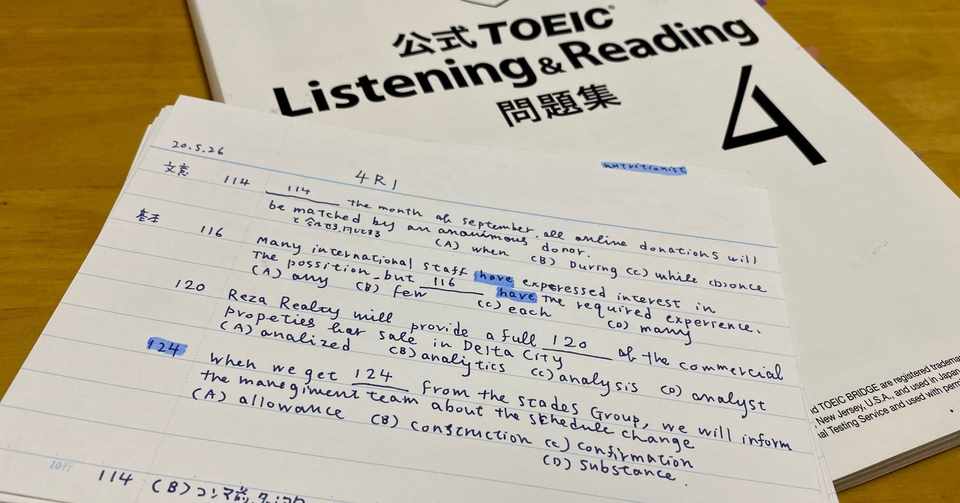 公式 TOEIC®
Listening & Reading
問題集
4
20.5.26
4R1
nutritionist
文意 114 114 the month of September, all online donations will
be matched by an anonimous donor.
(A) when (B) During (C) while (D) once
基本 116 Many international staff have expressed interest in
the possition, but 116 have the required experience.
(A) any (B) few (C) each (D) many
120 Reza Realty will provide a full 120 of the commercial
propeties for sale in Delta City
(A) analized (B) analytics (C) analysis (D) analyst
124 when we get 124 from the Stades Group, we will inform
the manegiment team about the schedule change
(A) allowance (B) construction (C) confirmation
(D) substance.
114 (B)
d TOEIC BRIDGE are registered trademar
New Jersey, U.S.A., and used in Japan
al Testing Service and used with perm